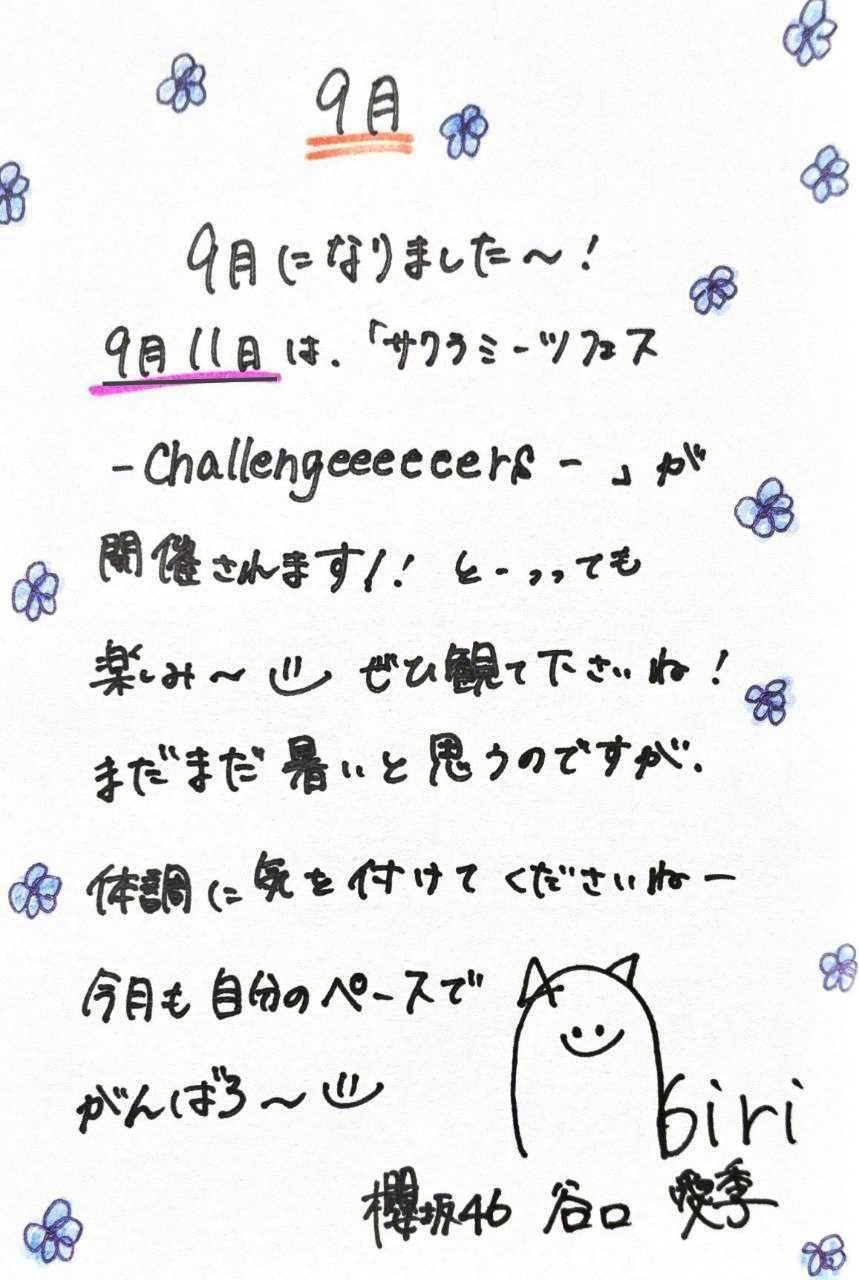 9月
9月になりました〜！
9月11日は、「サクラミーツフェス
-Challengeeeeeers-」が
開催されます!! とーっっても
楽しみ〜 ぜひ観て下さいね！
まだまだ暑いと思うのですが、
体調に気を付けてくださいねー
今月も自分のペースで
がんばろ〜
airi
櫻坂46 谷口 愛季